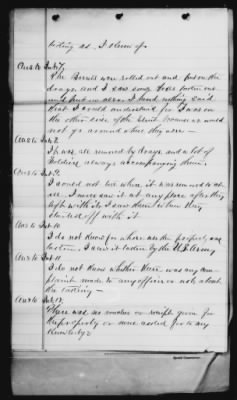 taking as I know of
Ans to Int 7.
The Barrels were rolled out and put on the
drays, and I saw some  taken out
and put on  I heard nothing said
that I could understand for I was on
the other side of the street because we would
not go around where they were —
Ans to Int 8.
It was all removed by drays and a lot of
Soldiers always accompanying them.
Ans to Int 9.
I could not tell where it was moved to at
all. I never saw it at any place after they
left with it. I saw them when they
started off with it
Ans to Int 10
I do not know for where use the property was
taken. I saw it taken by the U.S. Army
Ans to Int 11
I do not know whether there was any com-
plaint made to any officer or not about
the taking —
Ans to Int 12.
There was no voucher or receipt given for
the property or none asked for to my
Knowledge